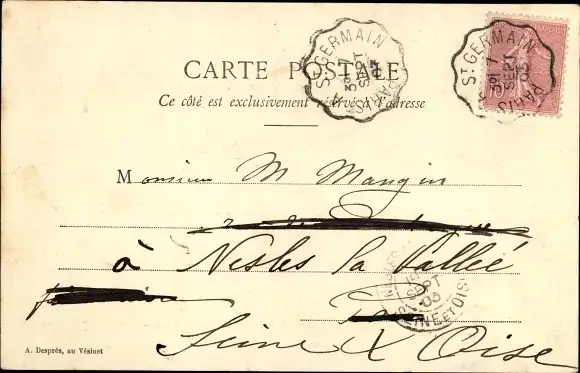 CARTE POSTALE
Ce côté est exclusivement réservé à l'adresse
ST GERMAIN A PARIS
7 SEPT 03
ST GERMAIN PARIS
7 SEPT 03
Monsieur M Mangin
à Nesles la Vallée
SEPT 03
NE ET OISE
Seine & Oise
A. Desprès, au Vésinet